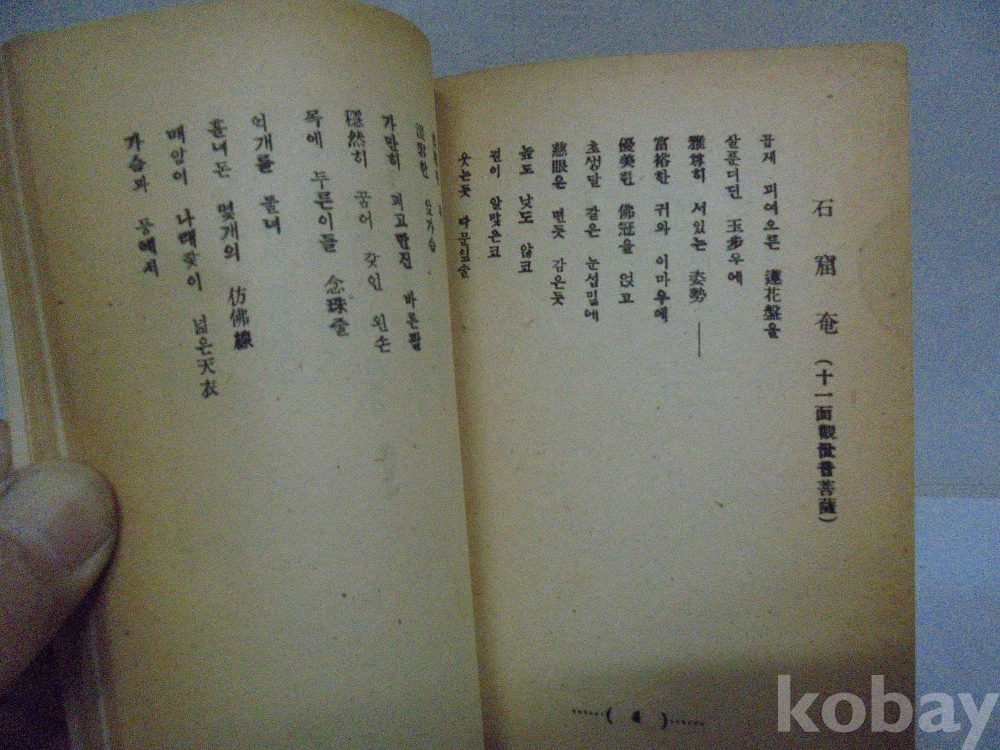 石窟奄 (十一面觀世音菩薩)
곱게 피여오른 蓮花盤을
살푼디딘 玉步우에
雅尊히 서있는 姿勢 ──
富裕한 귀와 이마우에
優美한 佛冠을 얹고
초생달 같은 눈섭밑에
慈眼은 뜬듯 감은듯
높도 낮도 않고
길이 알맞은코
웃는듯 다문입술
가만히 펴고만진 바른팔
隱然히 꿈어 갖인 왼손
목에 두른이들 念珠줄
억개를 흘녀
흘녀 돈 몇개의 仿佛線
매암이 나래갖이 넓은 天衣
가슴과 등에서
( 4 )
kobay